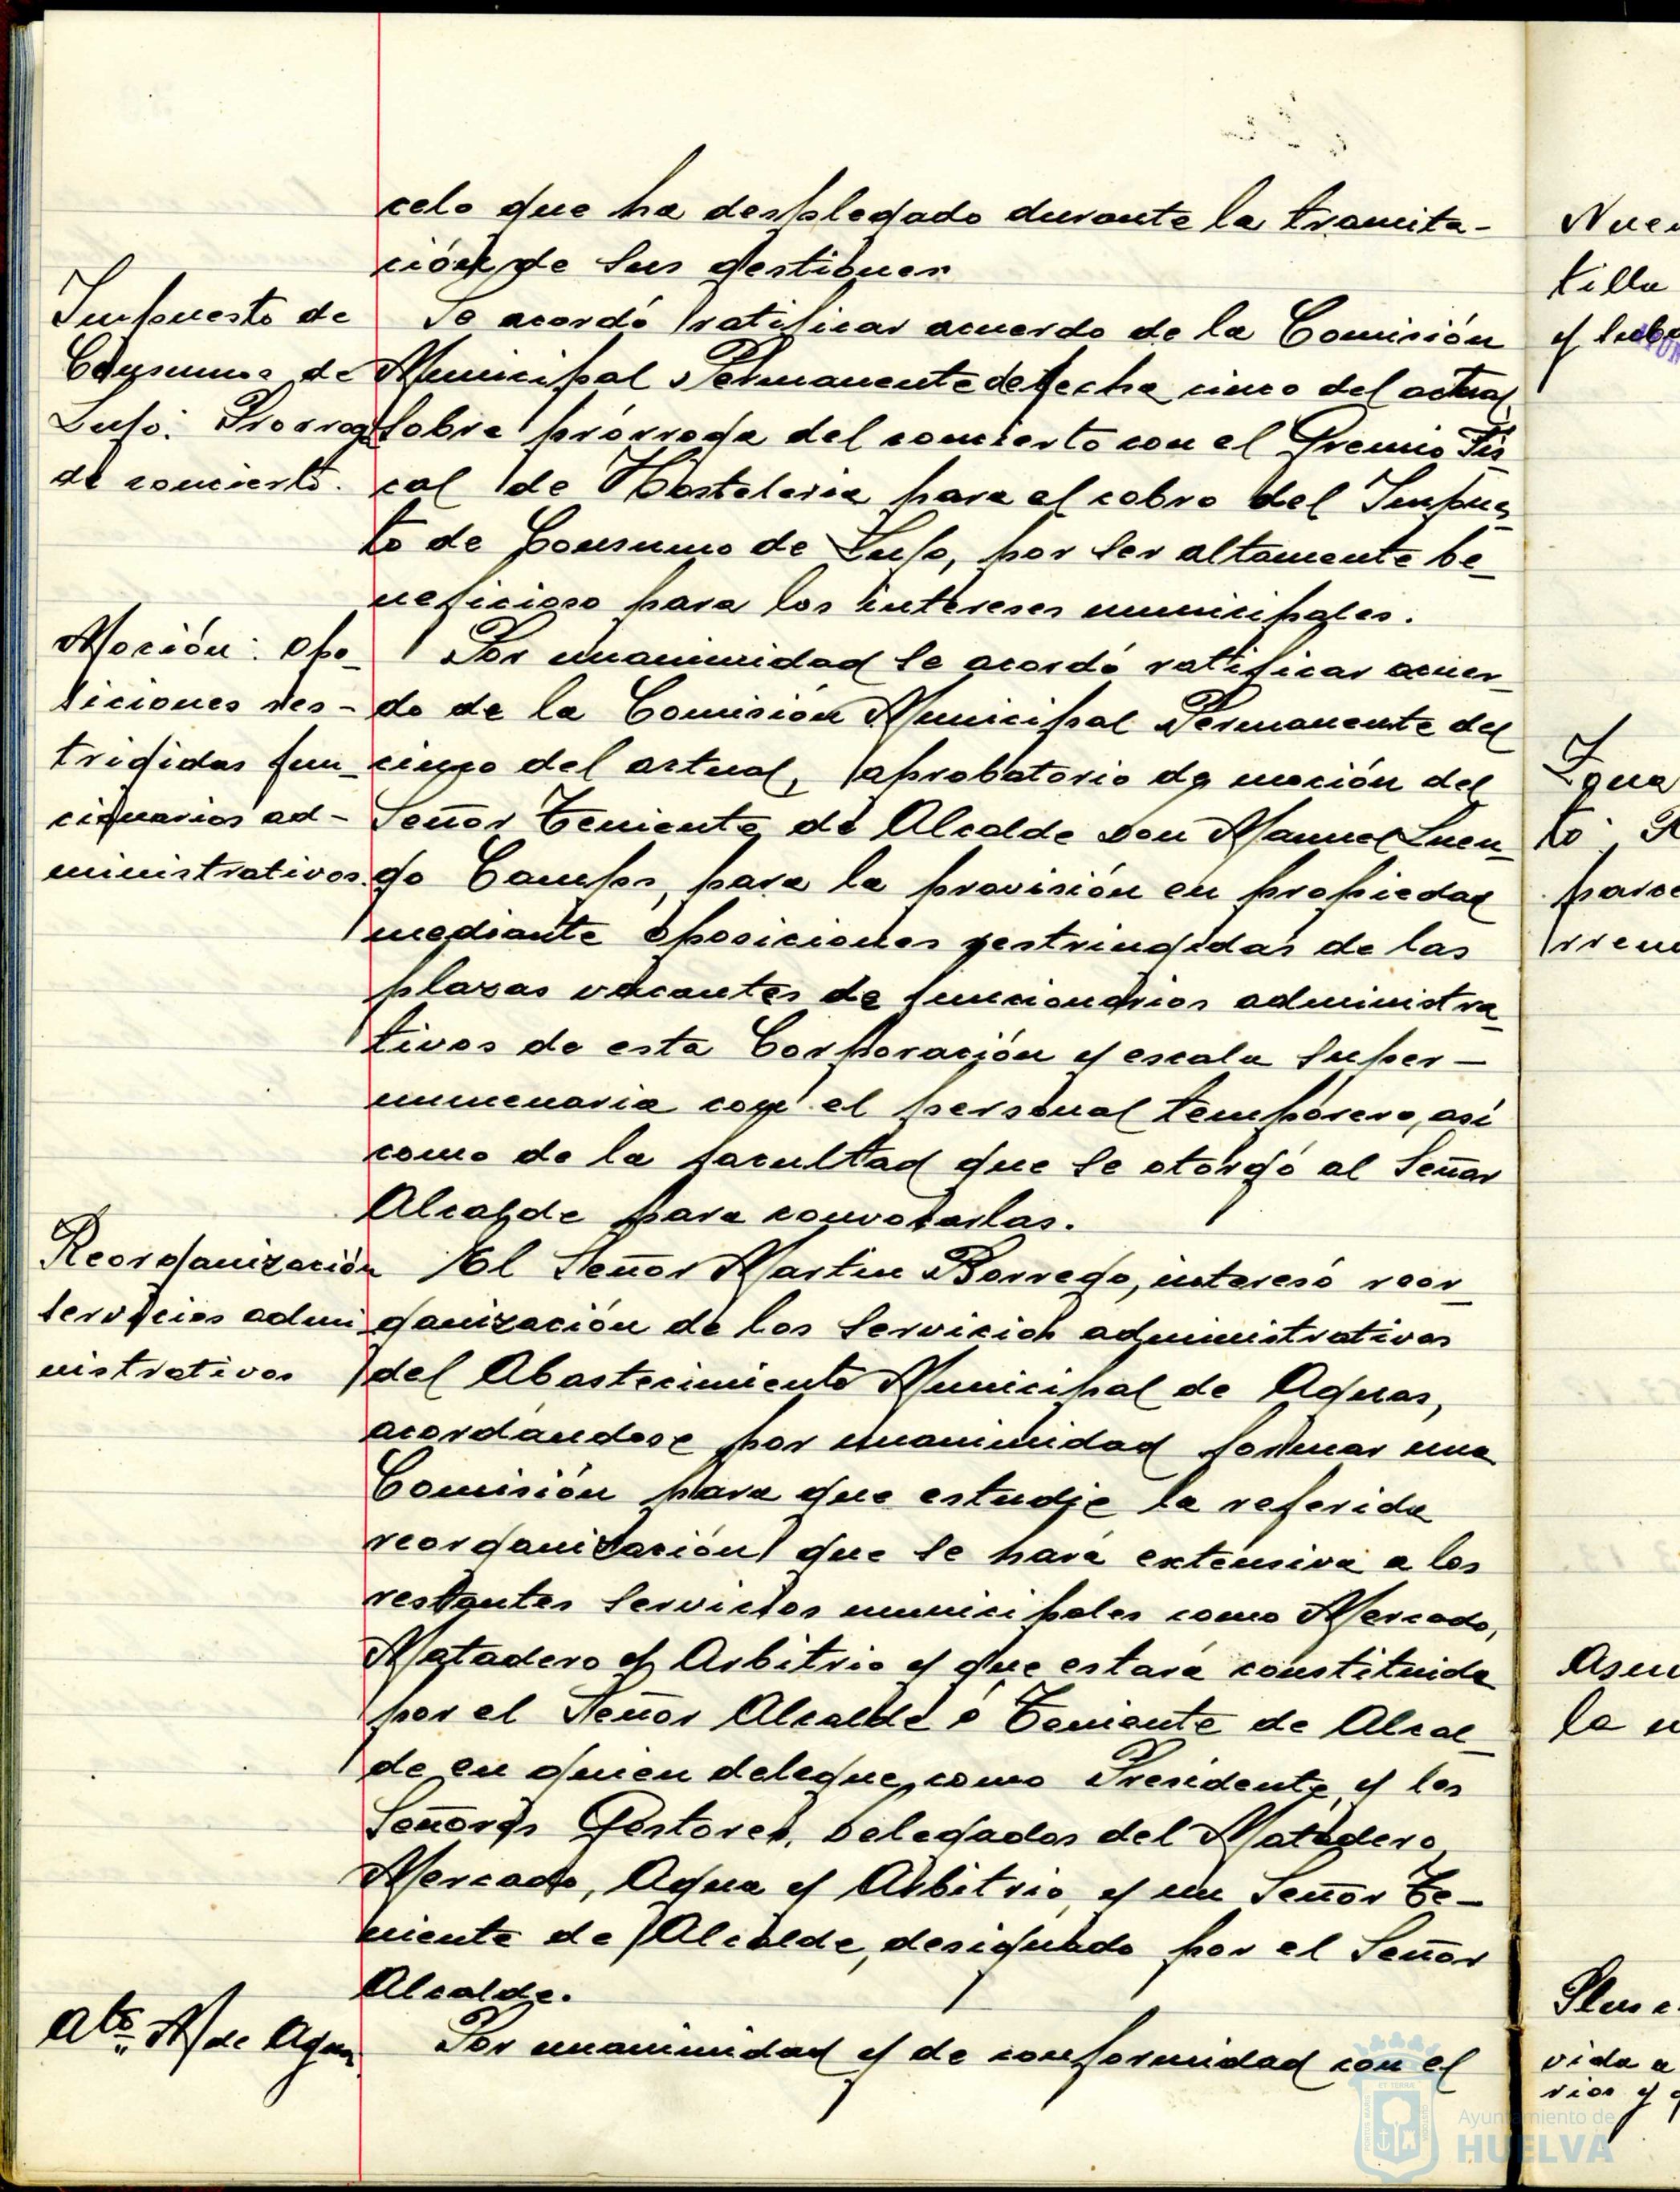 celo que ha desplegado durante la tramita-
ción de sus gestiones
Impuesto de
Consumos de
Lujo: Prorroga
de concierto.
Se acordó ratificar acuerdo de la Comisión
Municipal Permanente de fecha cinco del actual
sobre prórroga del concierto con el Gremio Fis-
cal de Hosteleria para el cobro del Impues-
to de Consumo de Lujo, por ser altamente be-
neficioso para los intereses municipales.
Moción: Opo-
siciones res-
trigidas fun-
cionarios ad-
ministrativos.
Por unanimidad se acordó ratificar acuer-
do de la Comisión Municipal Permanente del
cinco del actual, aprobatorio de moción del
Señor Teniente de Alcalde Don Manuel Luen-
go Camps, para la provisión en propiedad
mediante oposiciones restringidas de las
plazas vacantes de funcionarios administra-
tivos de esta Corporación y escala super-
numeraria con el personal temporero, así
como de la facultad que se otorgó al Señor
Alcalde para convocarlas.
Reorganización
servicios admi
nistrativos
El Señor Martin Borrego, interesó reor-
ganización de los servicios administrativos
del Abastecimiento Municipal de Aguas,
acordándose por unanimidad formar una
Comisión para que estudie la referida
reorganización que se hará extensiva a los
restantes servicios municipales como Mercado,
Matadero y Arbitrio y que estará constituida
por el Señor Alcalde ó Teniente de Alcal-
de en quien delegue, como Presidente, y los
Señores Gestores, Delegados del Matadero,
Mercado, Agua y Arbitrio, y un Señor Te-
niente de Alcalde, designado por el Señor
Alcalde.
Abto. M de Aguas
Por unanimidad y de conformidad con el
Ayuntamiento de
HUELVA